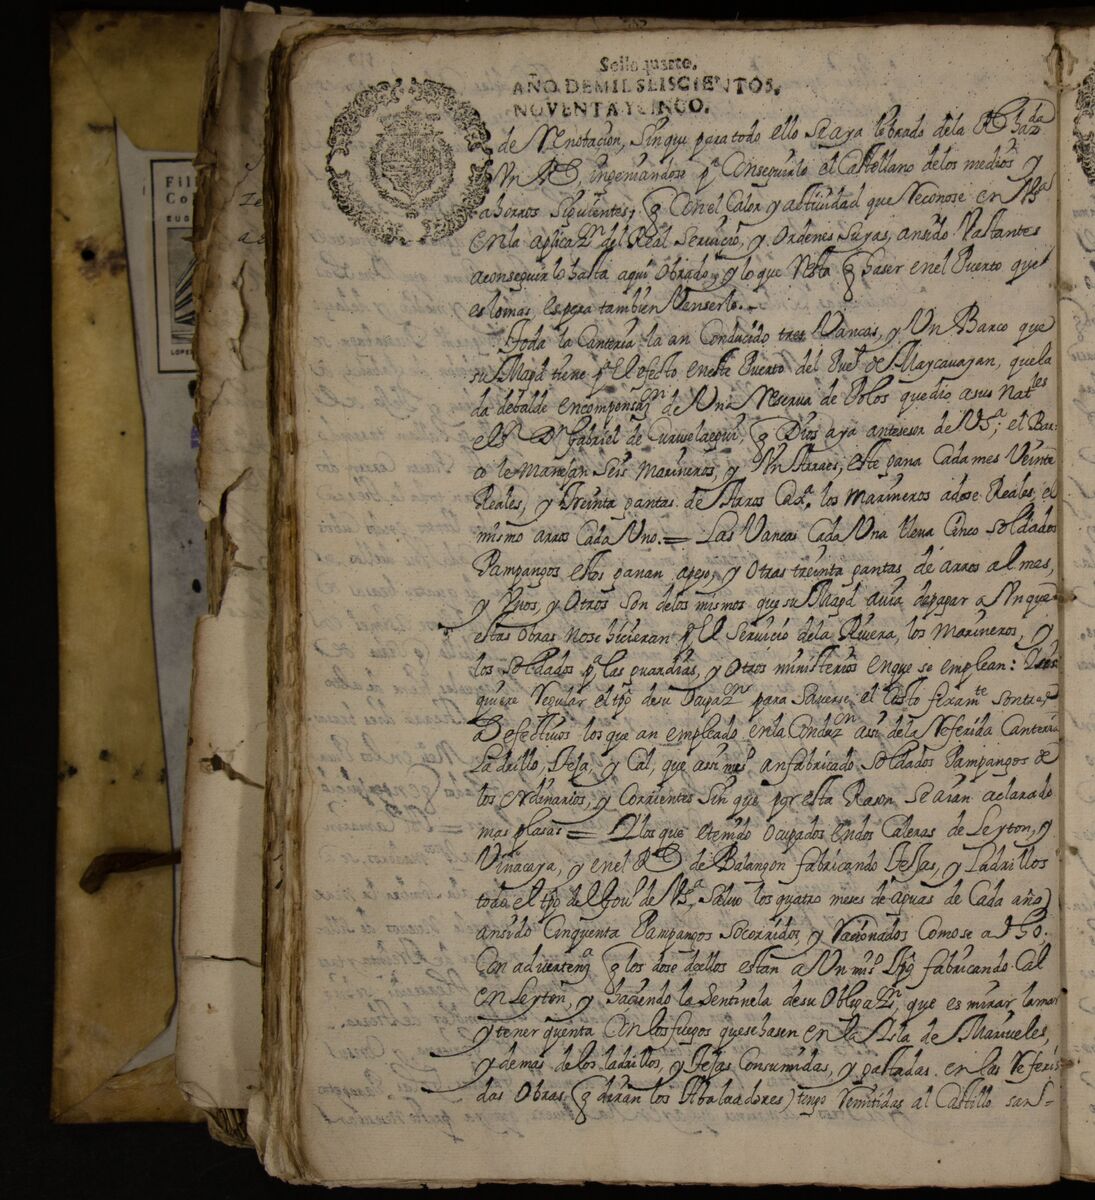 Sello quarto.
AÑO DE MIL SEISCIENTOS,
NOVENTA Y CINCO.
de, Sin que para todo ello Se aya librado de la Rl hazda
Un Rl, ingeniandose pa Conseguirlo el Castellano de los medios y
ahorros Siguientes; q Con el Calor y actividad que Reconose en VSa
en la aplicazn del Real Servicio, y Ordenes Suyas, an sido Vastantes
a conseguir lo hasta aqui obrado, y lo que Resta q haser en el Puerto que
es lo mas, espera tambien Venserlo.
Toda la Canteria la an Conducido tres Vancas, y Un Barco que
su Magd tiene pa el efecto en este Puerto del Puo de Maycavayan, que la
da debalde en compensazn de Una Reserva de Polos que dio a sus Natles
el Sr Dn Gabriel de Curuselaegui q Dios aya antesesor de VSa; el Bar-
co le Manejan Seis Marineros, y Un Arraes; este gana Cada mes Veinte
Reales, y treinta gantas de Arros, los Marineros a dose Reales, el
mismo arros Cada Uno. = Las Vancas Cada Una lleva Cinco Soldados
Pampangos estos ganan a peso, y Otras treinta gantas de arros al mes,
y Unos, y Otros Son de los mismos que su Magd avia de pagar a Un que
estas Obras no se hicieran pa el Servicio de la Rivera, los Marineros, y
los Soldados pa las guardias, y Otros ministerios en que se emplean:
quiere Regular el tpo de su Ocupazn para Saverse el Costo fixamte son tres
a efectivos los que an empleado en la Conduzn assi de la Referida Canteria
Ladrillo, Teja, y Cal, que assi mismo an fabricado Soldados Pampangos de
los Ordinarios, y Corrientes Sin que por esta Rason Se aian aclarado
mas plasas = Y los que e tenido Ocupados en dos Caleras de Leyton, y
Vinacaya, y en el Rl de Balangon fabricando Tejas, y Ladrillos
todo el tpo del Gouo de VSa, Salvo los quatro meses de aguas de Cada año)
an sido Cinquenta Pampangos Socorridos, y Racionados Como se a dho.
Con advertenza q los dose dellos estan a Un mismo tpo fabricando Cal
en Leyton, y haciendo la Sentinela de su Obligazn, que es mirar la mar
y tener quenta Con los fuegos que se hasen en la Isla de Mariveles,
y demas de los ladrillos, y Tejas Consumidas, y gastadas en las Referi-
das Obras, (q diran los Abaluadores) tengo Remitidas al Castillo San-